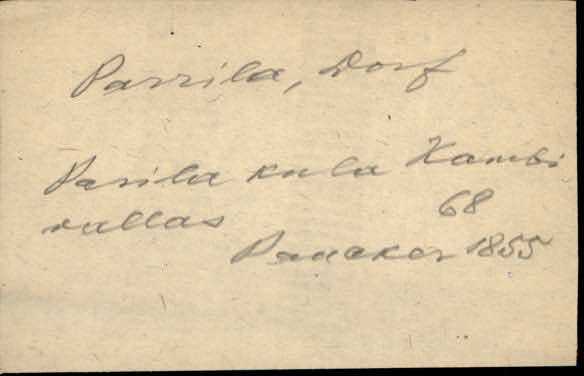 Parrila, Dorf
Parila küla Kambi
vallas 68
Paucker 1855